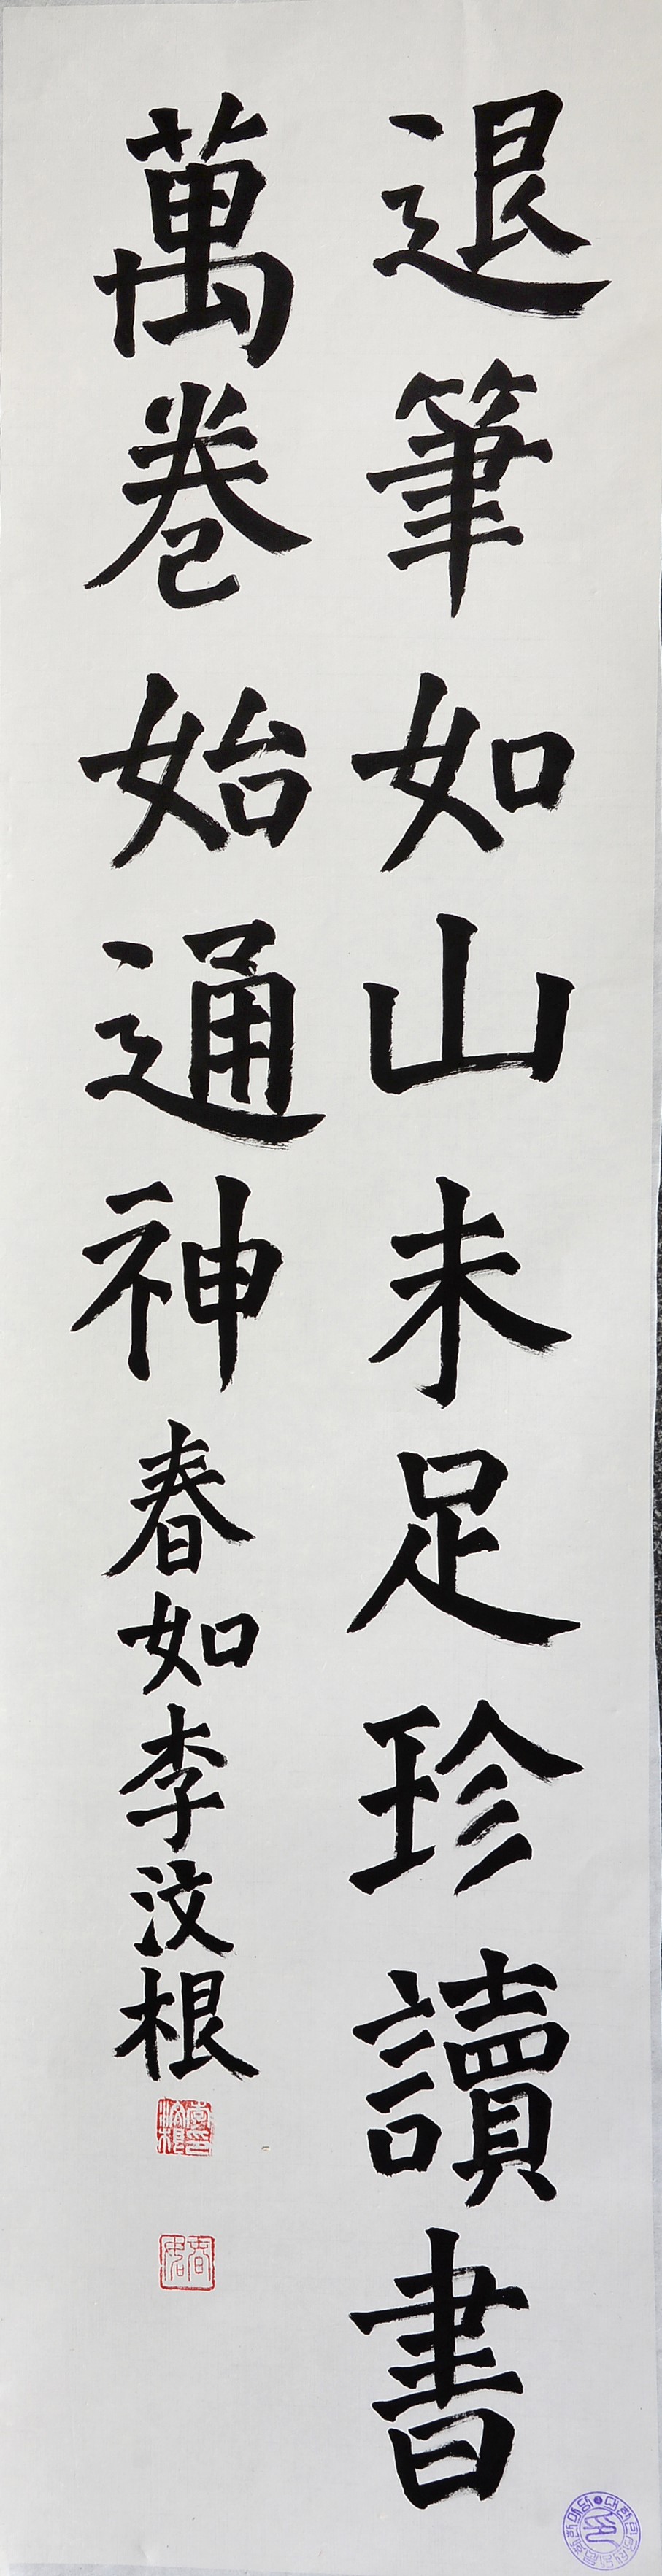 退筆如山未足珍讀書
萬卷始通神 春如李汶根